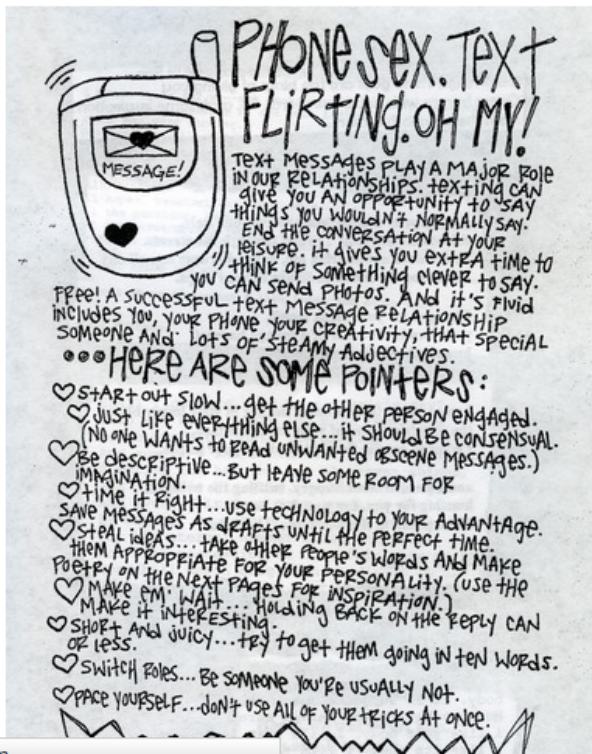 PHONE SEX. TEXT
FLIRTING. OH MY!
MESSAGE!
TEXT MESSAGES PLAY A MAJOR ROLE
IN OUR RELATIONSHIPS. TEXTING CAN
GIVE YOU AN OPPORTUNITY TO SAY
THINGS YOU WOULDN'T NORMALLY SAY.
END THE CONVERSATION AT YOUR
LEISURE. IT GIVES YOU EXTRA TIME TO
THINK OF SOMETHING CLEVER TO SAY.
YOU CAN SEND PHOTOS. AND IT'S FLUID
FREE! A SUCCESSFUL TEXT MESSAGE RELATIONSHIP
INCLUDES YOU, YOUR PHONE YOUR CREATIVITY, THAT SPECIAL
SOMEONE AND LOTS OF STEAMY ADJECTIVES.
...HERE ARE SOME POINTERS:
START OUT SLOW...GET THE OTHER PERSON ENGAGED.
JUST LIKE EVERYTHING ELSE...IT SHOULD BE CONSENSUAL.
(NO ONE WANTS TO READ UNWANTED OBSCENE MESSAGES.)
BE DESCRIPTIVE...BUT LEAVE SOME ROOM FOR
IMAGINATION.
TIME IT RIGHT...USE TECHNOLOGY TO YOUR ADVANTAGE.
SAVE MESSAGES AS DRAFTS UNTIL THE PERFECT TIME.
STEAL IDEAS...TAKE OTHER PEOPLE'S WORDS AND MAKE
THEM APPROPRIATE FOR YOUR PERSONALITY. (USE THE
POETRY ON THE NEXT PAGES FOR INSPIRATION.)
MAKE EM' WAIT... HOLDING BACK ON THE REPLY CAN
MAKE IT INTERESTING.
SHORT AND JUICY...TRY TO GET THEM GOING IN TEN WORDS.
OR LESS.
SWITCH ROLES...BE SOMEONE YOU'RE USUALLY NOT.
PACE YOURSELF...DON'T USE ALL OF YOUR TRICKS AT ONCE.